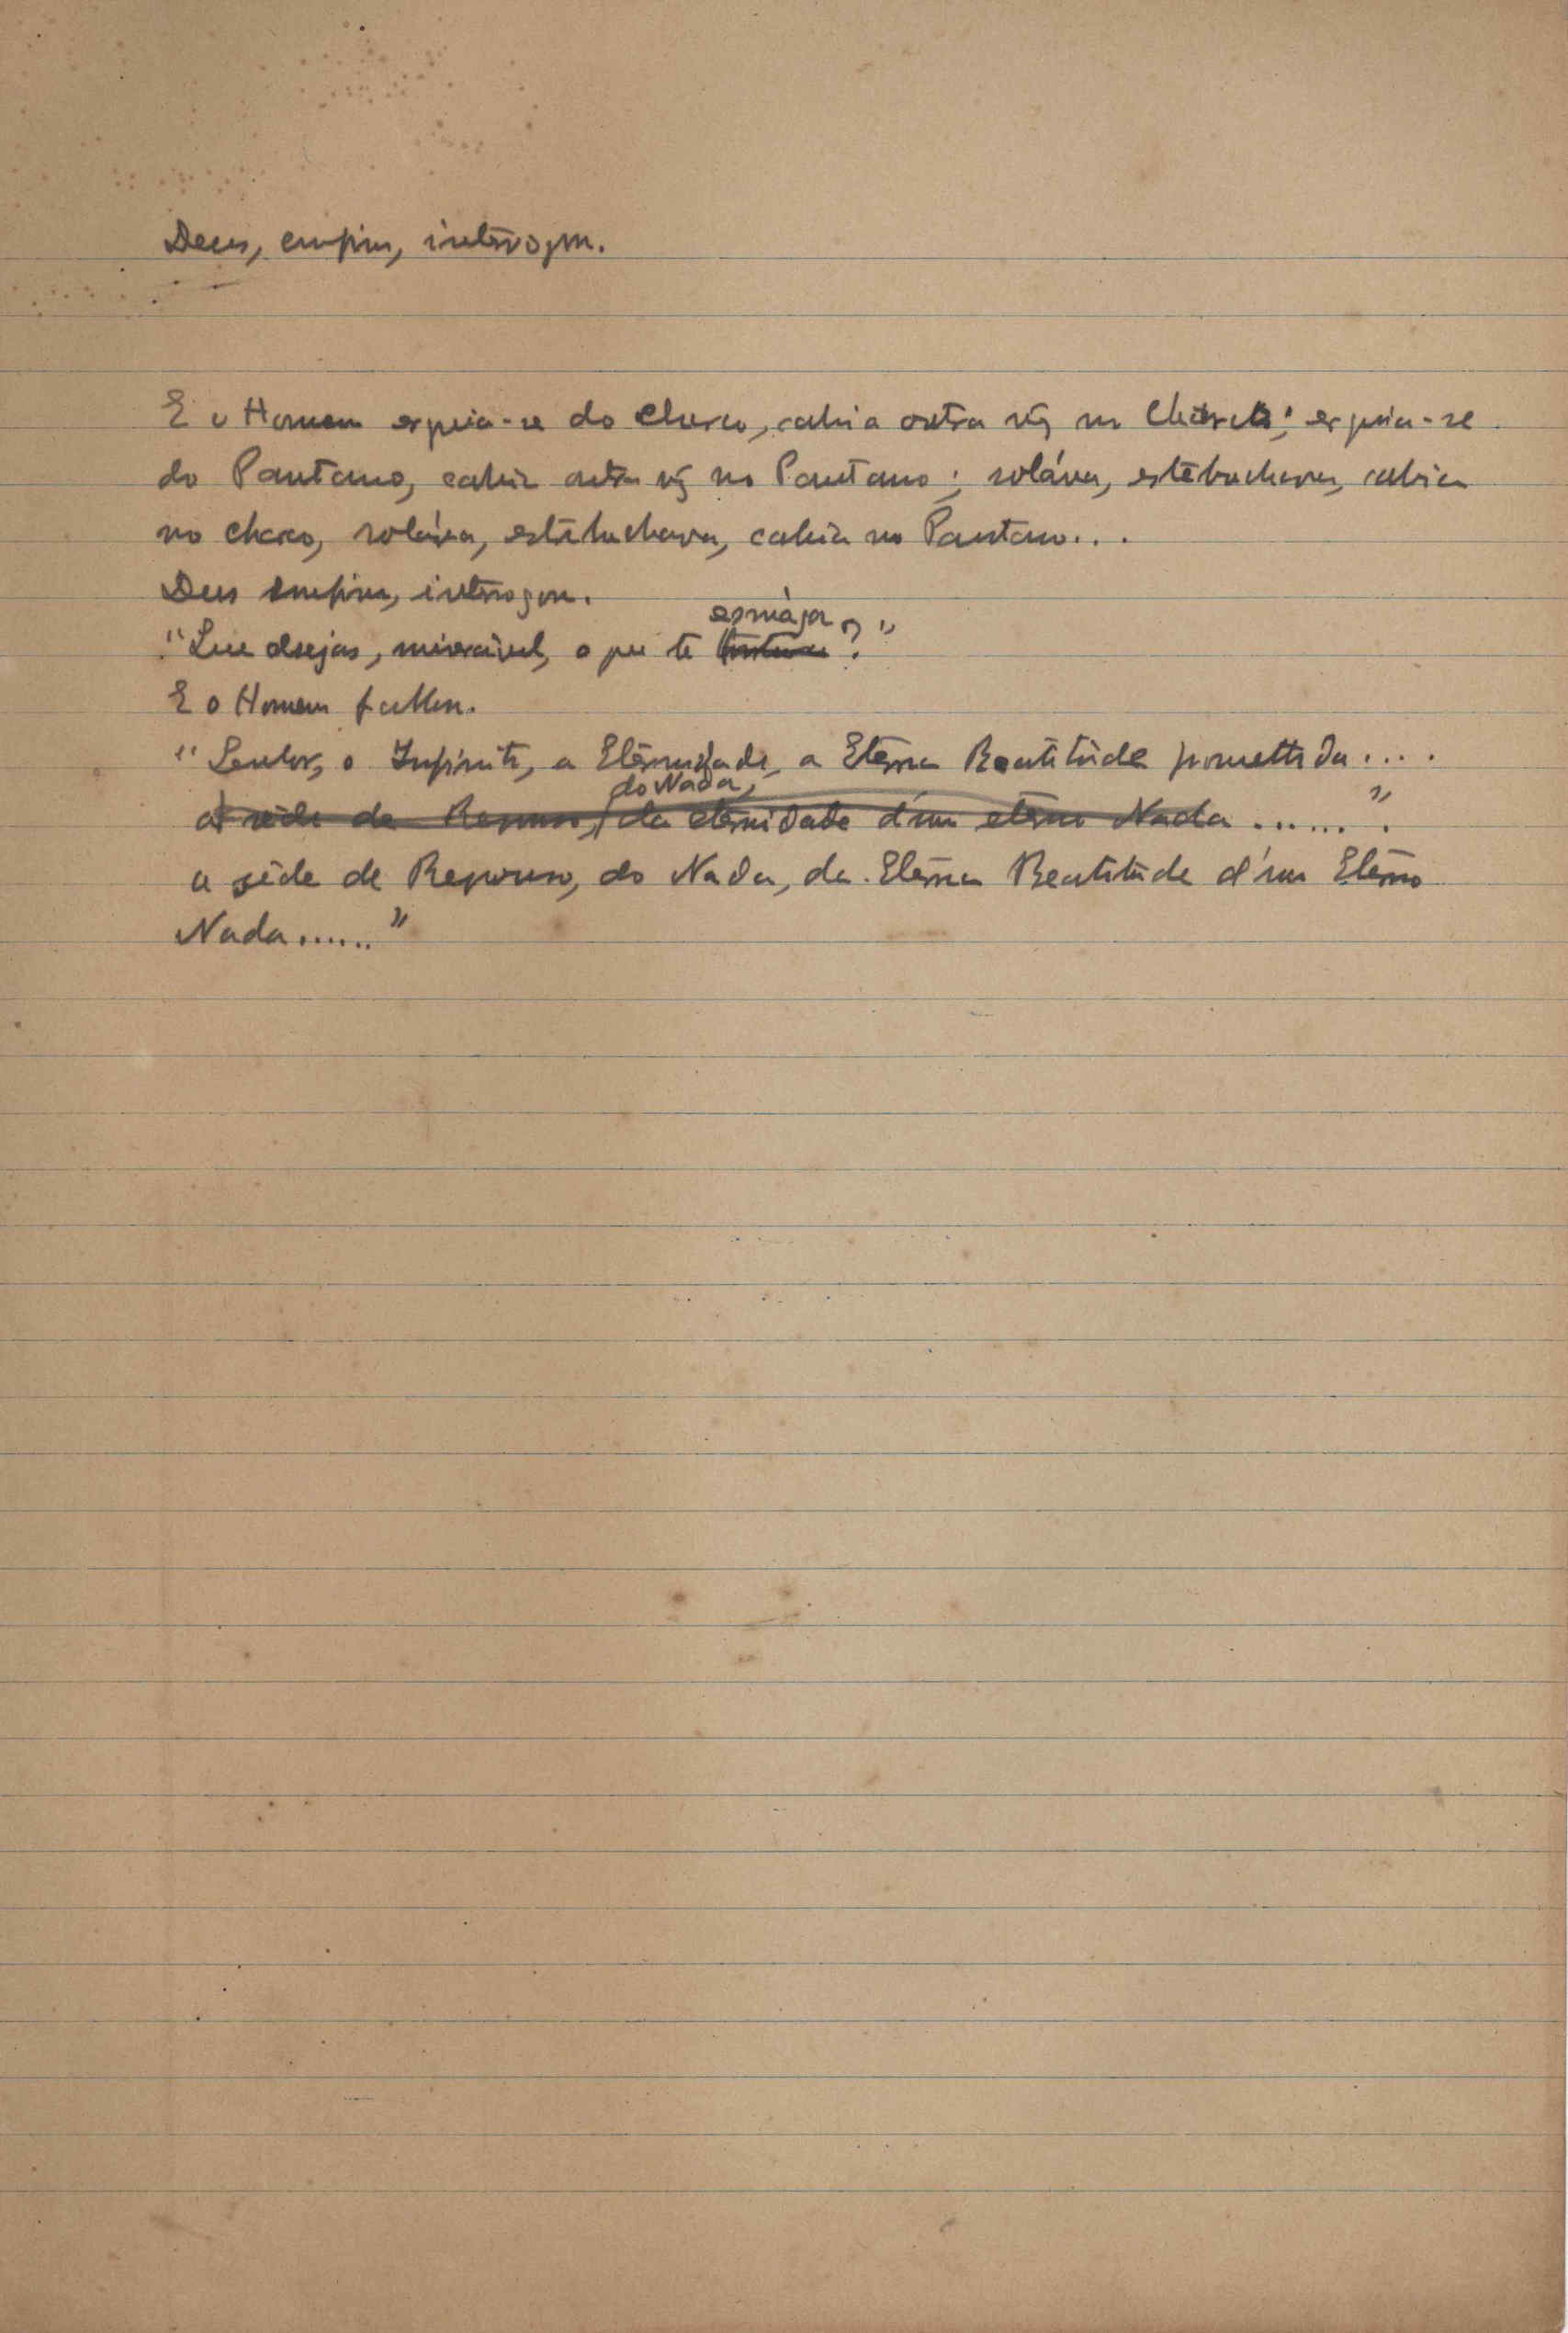 Deus, emfim, interrogou.
E o Homem erguia-se do charco, cahia outra vez no charco; erguia-se
do Pantano, cahia outra vez no Pantano; roláva, esterbuchava, cahia
no charco, roláva, esterbuchava, cahia no Pantano...
Deus emfim, interrogou.
esmága
"Que desejas, miseravel, o que te tortura?"
E o Homem fallou.
"Senhor, o Infinito, a Eternidade, a Eterna Beatitude promettida....
do Nada,
a sêde de Repouso, da eternidade d'um eterno Nada ......".
a sêde de Repouso, do Nada, da Eterna Beatitude d'um Eterno
Nada......"